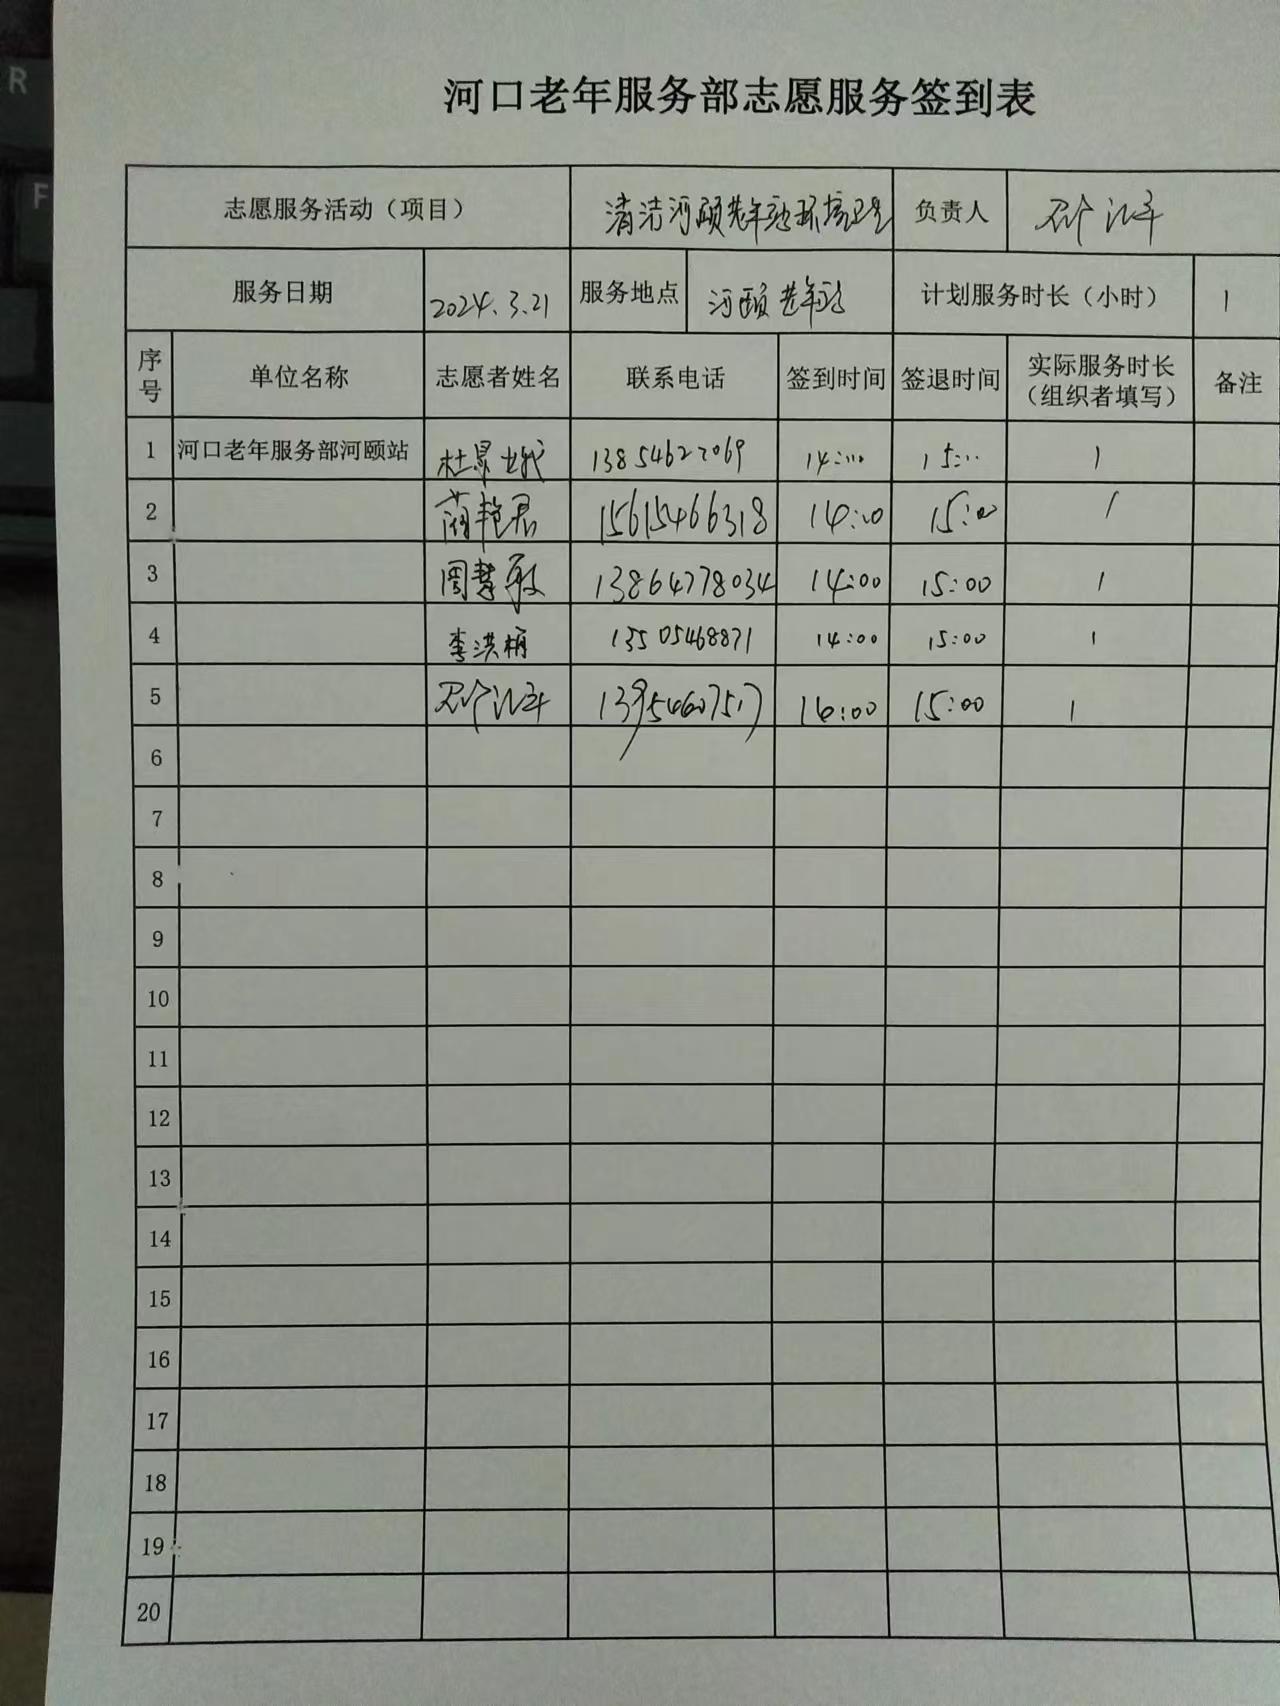 R
F
河口老年服务部志愿服务签到表
志愿服务活动（项目） 清洁河颐老年站环境卫生 负责人
服务日期 2024.3.21 服务地点 河颐老年站 计划服务时长（小时） 1
序号 单位名称 志愿者姓名 联系电话 签到时间 签退时间 实际服务时长（组织者填写） 备注
1 河口老年服务部河颐站 杜景娥 13854627069 14:00 15:00 1
2 艳君 15615466318 14:00 15:00 1
3 周慧敏 13864778034 14:00 15:00 1
4 李洪梅 13505468871 14:00 15:00 1
5 13954607517 14:00 15:00 1
6
7
8
9
10
11
12
13
14
15
16
17
18
19
20